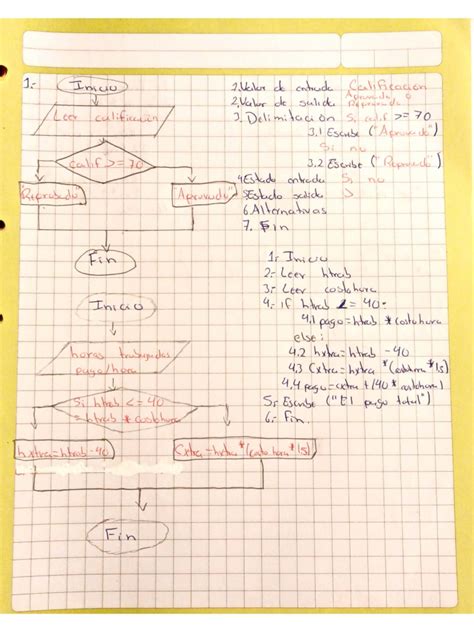 1.-
Inicio
Leer calificación
calif >= 70
"Reprobado"
Aprovado"
Fin
1. Valor de entrada Calificacion
2. Valor de salida Aprovado o Reprovado
3. Delimitación Si calif >= 70
3.1 Escribe ("Aprovado")
Si no
3.2 Escribe ("Reprovado")
4 Estado entrada Si no
5 Estado salida
6. Alternativas
7. Fin
Inicio
horas trabajadas
pago/hora
Si htrab <= 40
htrab * costohora
hxtra = htrab - 40
Fin
1.- Inicio
2.- Leer htrab
3.- Leer costohora
4.- if htrab <= 40:
4.1 pago = htrab * costohora
else:
4.2 hxtra = htrab - 40
4.3 Cxtra = hxtra * (costohora * 1.5)
4.4 pago = cxtra + (40 * costohora)
5.- Escribe ("El pago total")
6.- Fin.